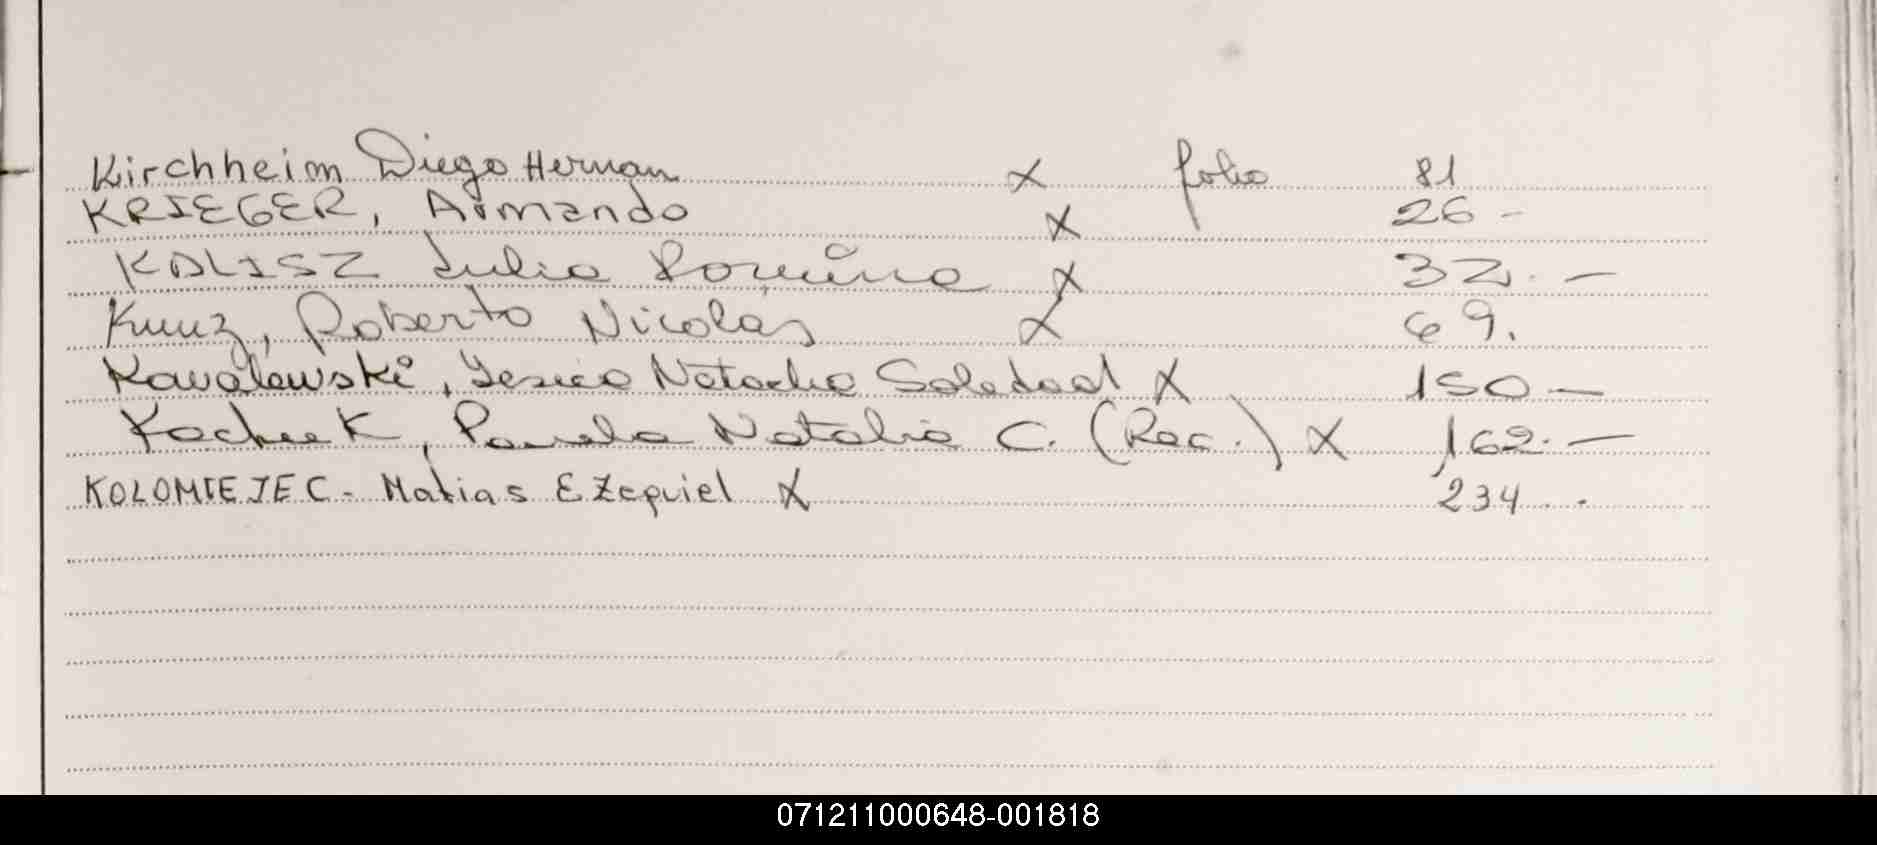 Kirchheim Diego Hernan x folio 81
KRIEGER, Armando x 26 -
KALISZ Julia Romina x 32. -
Kunz, Roberto Nicolás x 69.
Kavalewski, Yesica Natacha Soledad x 150 -
Kachuk, Pamela Natalia C. (Rec.) x 162. -
KOLOMIEJEC - Matias Ezequiel x 234
071211000648-001818